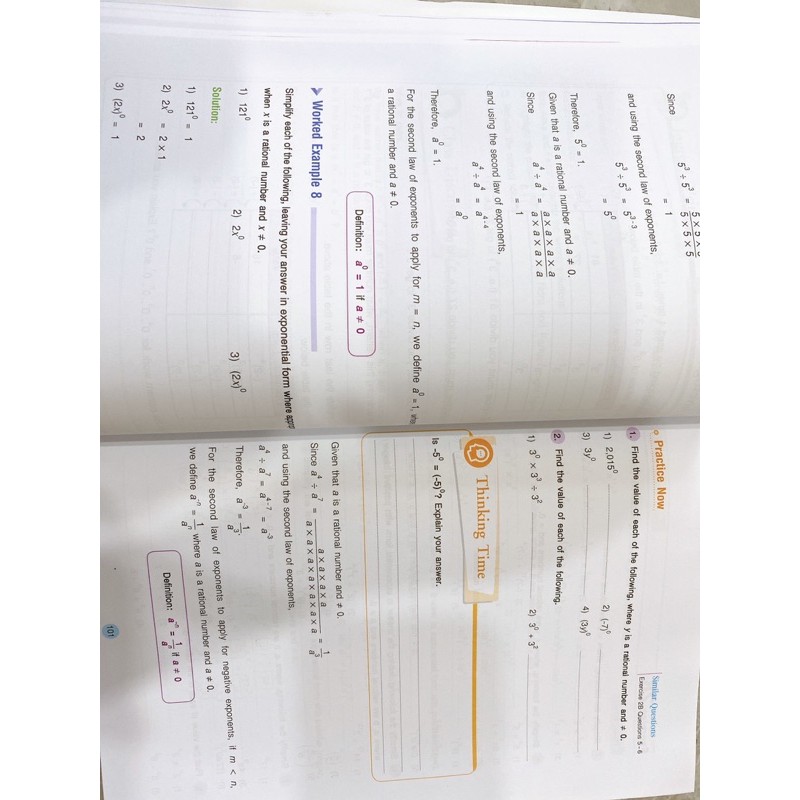 5 × 5 ×
5³ ÷ 5³ = 5 × 5 × 5
Since
= 1
and using the second law of exponents,
5³ ÷ 5³ = 5³⁻³
= 5⁰
Therefore, 5⁰ = 1.
Given that a is a rational number and a ≠ 0.
Since a⁴ ÷ a⁴ = a × a × a × a / a × a × a × a
= 1
and using the second law of exponents,
a⁴ ÷ a⁴ = a⁴⁻⁴
= a⁰
Therefore, a⁰ = 1.
For the second law of exponents to apply for m = n, we define a⁰ = 1, whe
a rational number and a ≠ 0.
Definition: a⁰ = 1 if a ≠ 0
Worked Example 8
Simplify each of the following, leaving your answer in exponential form where appro
when x is a rational number and x ≠ 0.
1) 121⁰ 2) 2x⁰ 3) (2x)⁰
Solution:
1) 121⁰ = 1
2) 2x⁰ = 2 × 1
= 2
3) (2x)⁰ = 1
Similar Questions
Exercise 2B Questions 5 - 6
Practice Now
1. Find the value of each of the following, where y is a rational number and ≠ 0.
1) 2,015⁰ 2) (-7)⁰
3) 3y⁰ 4) (3y)⁰
2. Find the value of each of the following.
1) 3⁰ × 3³ ÷ 3² 2) 3⁰ + 3²
Thinking Time
Is -5⁰ = (-5)⁰? Explain your answer.
Given that a is a rational number and ≠ 0.
Since a⁴ ÷ a⁷ = a × a × a × a / a × a × a × a × a × a × a = 1/a³
and using the second law of exponents,
a⁴ ÷ a⁷ = a⁴⁻⁷ = a⁻³
Therefore, a⁻³ = 1/a³.
For the second law of exponents to apply for negative exponents, if m < n,
we define a⁻ⁿ = 1/aⁿ where a is a rational number and a ≠ 0.
Definition: a⁻ⁿ = 1/aⁿ if a ≠ 0
101